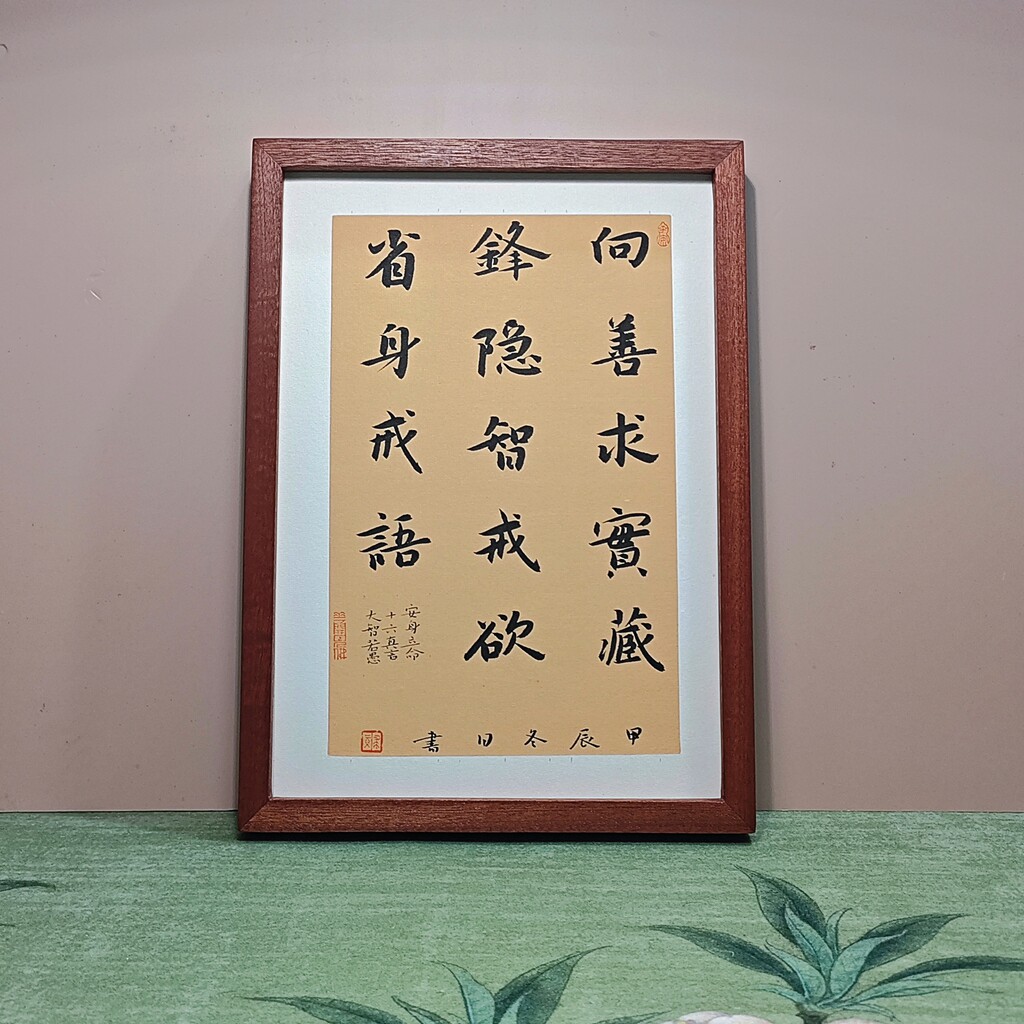 向善求實藏
鋒隐智戒欲
省身戒語
安身立命
十六真言
大智若愚
甲辰冬日書